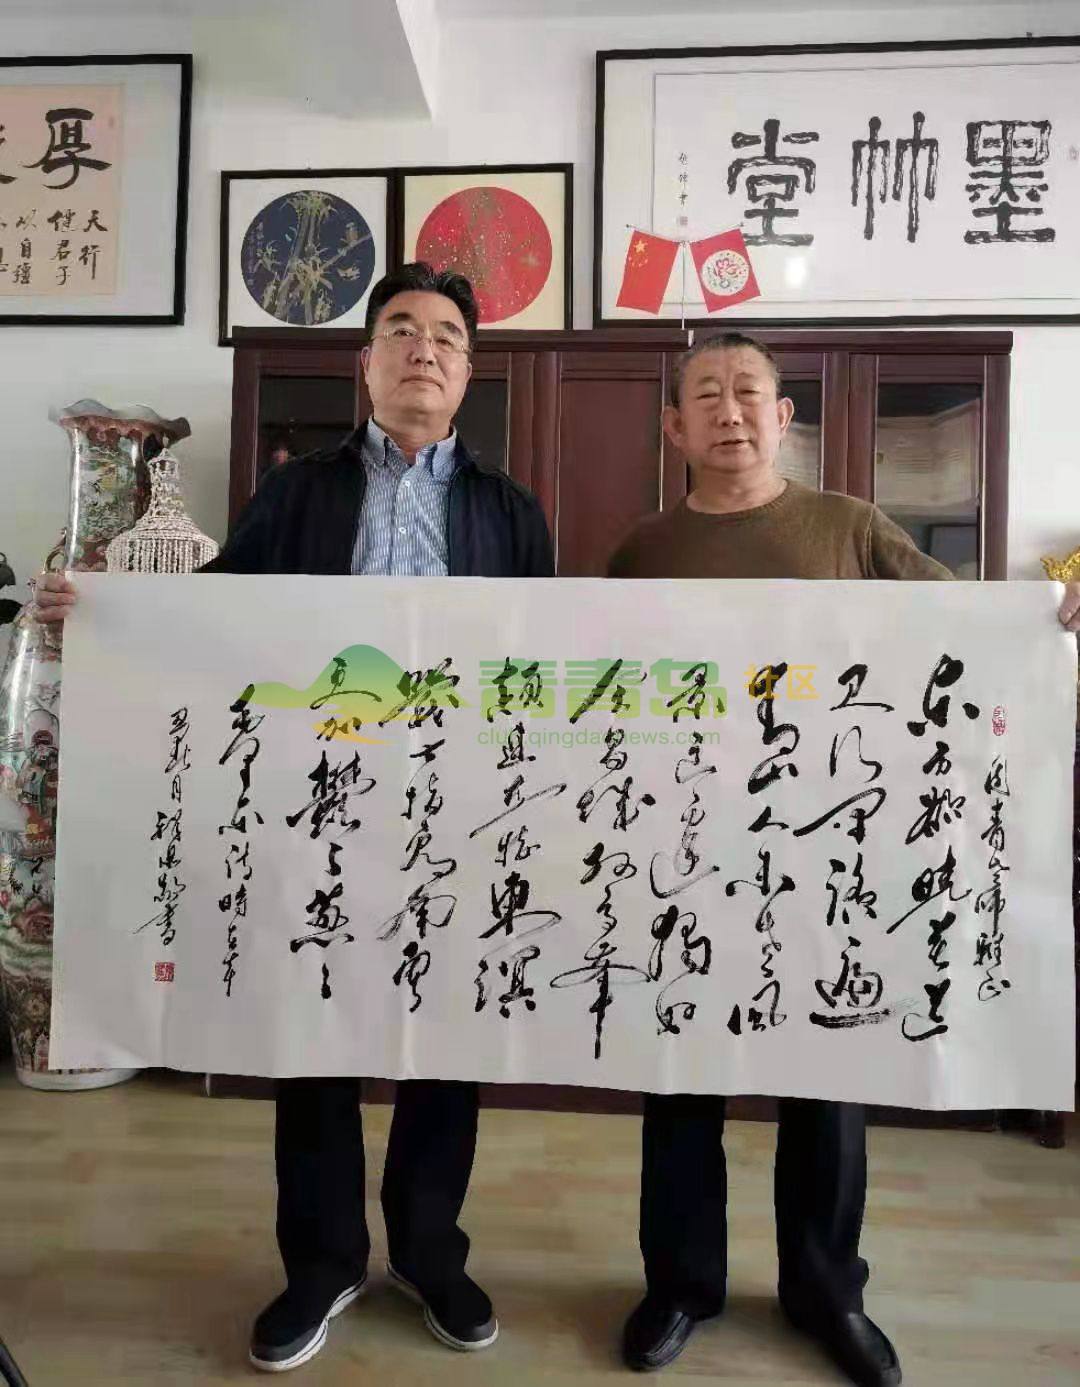 厚
天行
健君子
以自强
墨竹堂
东方欲晓莫道
君行早踏遍
青山人未老风
景这边独好
会昌城外高峰
颠连直接東溟
战士指看南粤
更加鬱々葱々
毛泽东诗時在辛
丑秋月
青青岛社区
club.qingdaonews.com